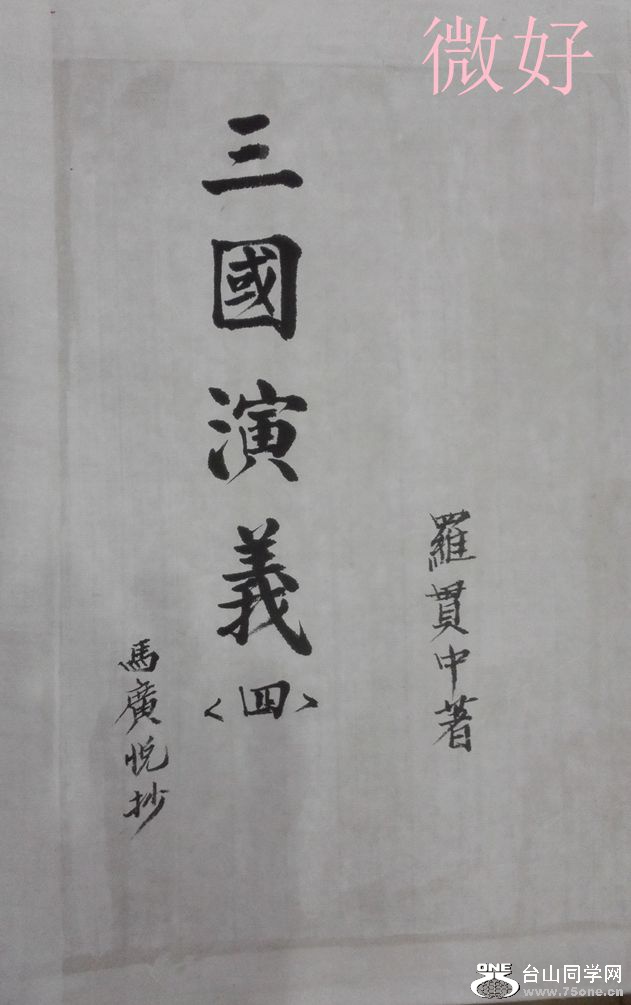 微好
羅貫中著
三國演義
<四>
馬廣悅抄
ONE
台山同学网
www.75one.cn